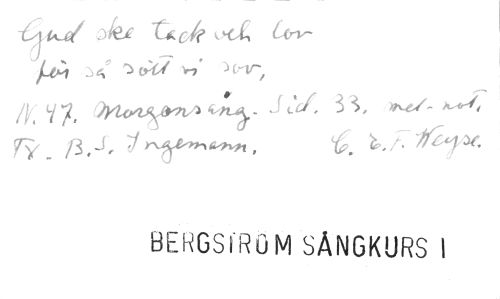 Gud ske tack och lov
för så sött vi sov,
N. 47. Morgonsång. Sid. 33. mel-not.
Tx. B.S. Ingemann. C. E. F. Weyse.
BERGSTRÖM SÅNGKURS I